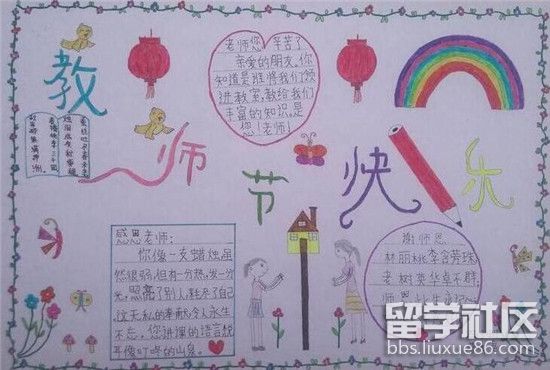 教师节快乐
老师您辛苦了
亲爱的朋友，你
知道是谁将我们领
进教室，教给我们
丰富的知识。是
您！老师！
感恩老师：
你像一支蜡烛虽
然很弱，但有一分热，发一分
光，照亮了别人，耗尽了自己
这无私的奉献，令人永生
不忘。您讲课的语言，悦
耳像叮咚的山泉。
谢师恩
林明桃李含芳珠
老树英华卓不群
留学社区
bbs.liuxue86.com